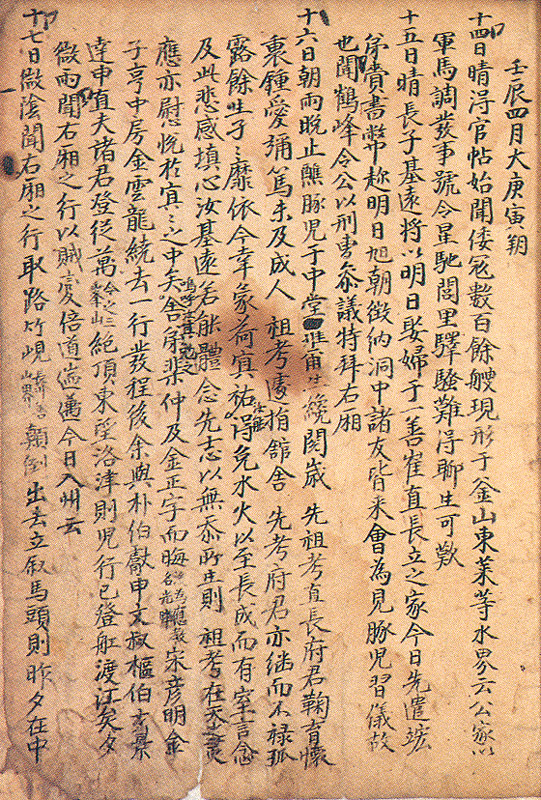 壬辰四月大庚寅朔
十四日晴淂官帖始聞倭冦數百餘艘現形于釜山東萊等水界云公家以
軍馬調發事號令星馳閭里驛騷難淂聊生可歎
十五日晴長子基遠將以明日娶婦于一善崔直長立之家今日先遣
弟賷書幣趍明日旭朝徵納洞中諸友皆來會為見豚児習儀故
也聞鶴峰令公以刑曹叅議特拜右廂
十六日朝雨晩止醮豚児于中堂 甫生纔閱歳 先祖考直長府君鞠育懐
裏鍾愛彌篤未及成人 祖考遽捐舘舎 先考府君亦継而不禄孤
露餘生孑〻靡依今幸蒙荷冥〻祐得免水火以至長成而有室言念
及此悲感填心汝基遠若能體念先志以無忝所生則 祖考在天之灵
應亦慰悦於冥〻之中矣 舎弟棐仲及金正字而晦 宋彦明金
子亨中房金雲龍統去一行發程後余與朴伯獻申文叔樞伯 景
達申直夫諸君登後萬 絶頂東望洛津則児行已登舡渡江矣夕
微雨聞右廂之行以賊変倍道 邁今日入州云
十七日微陰聞右廂之行取路竹峴 顛倒出去立叙馬頭則昨夕在中